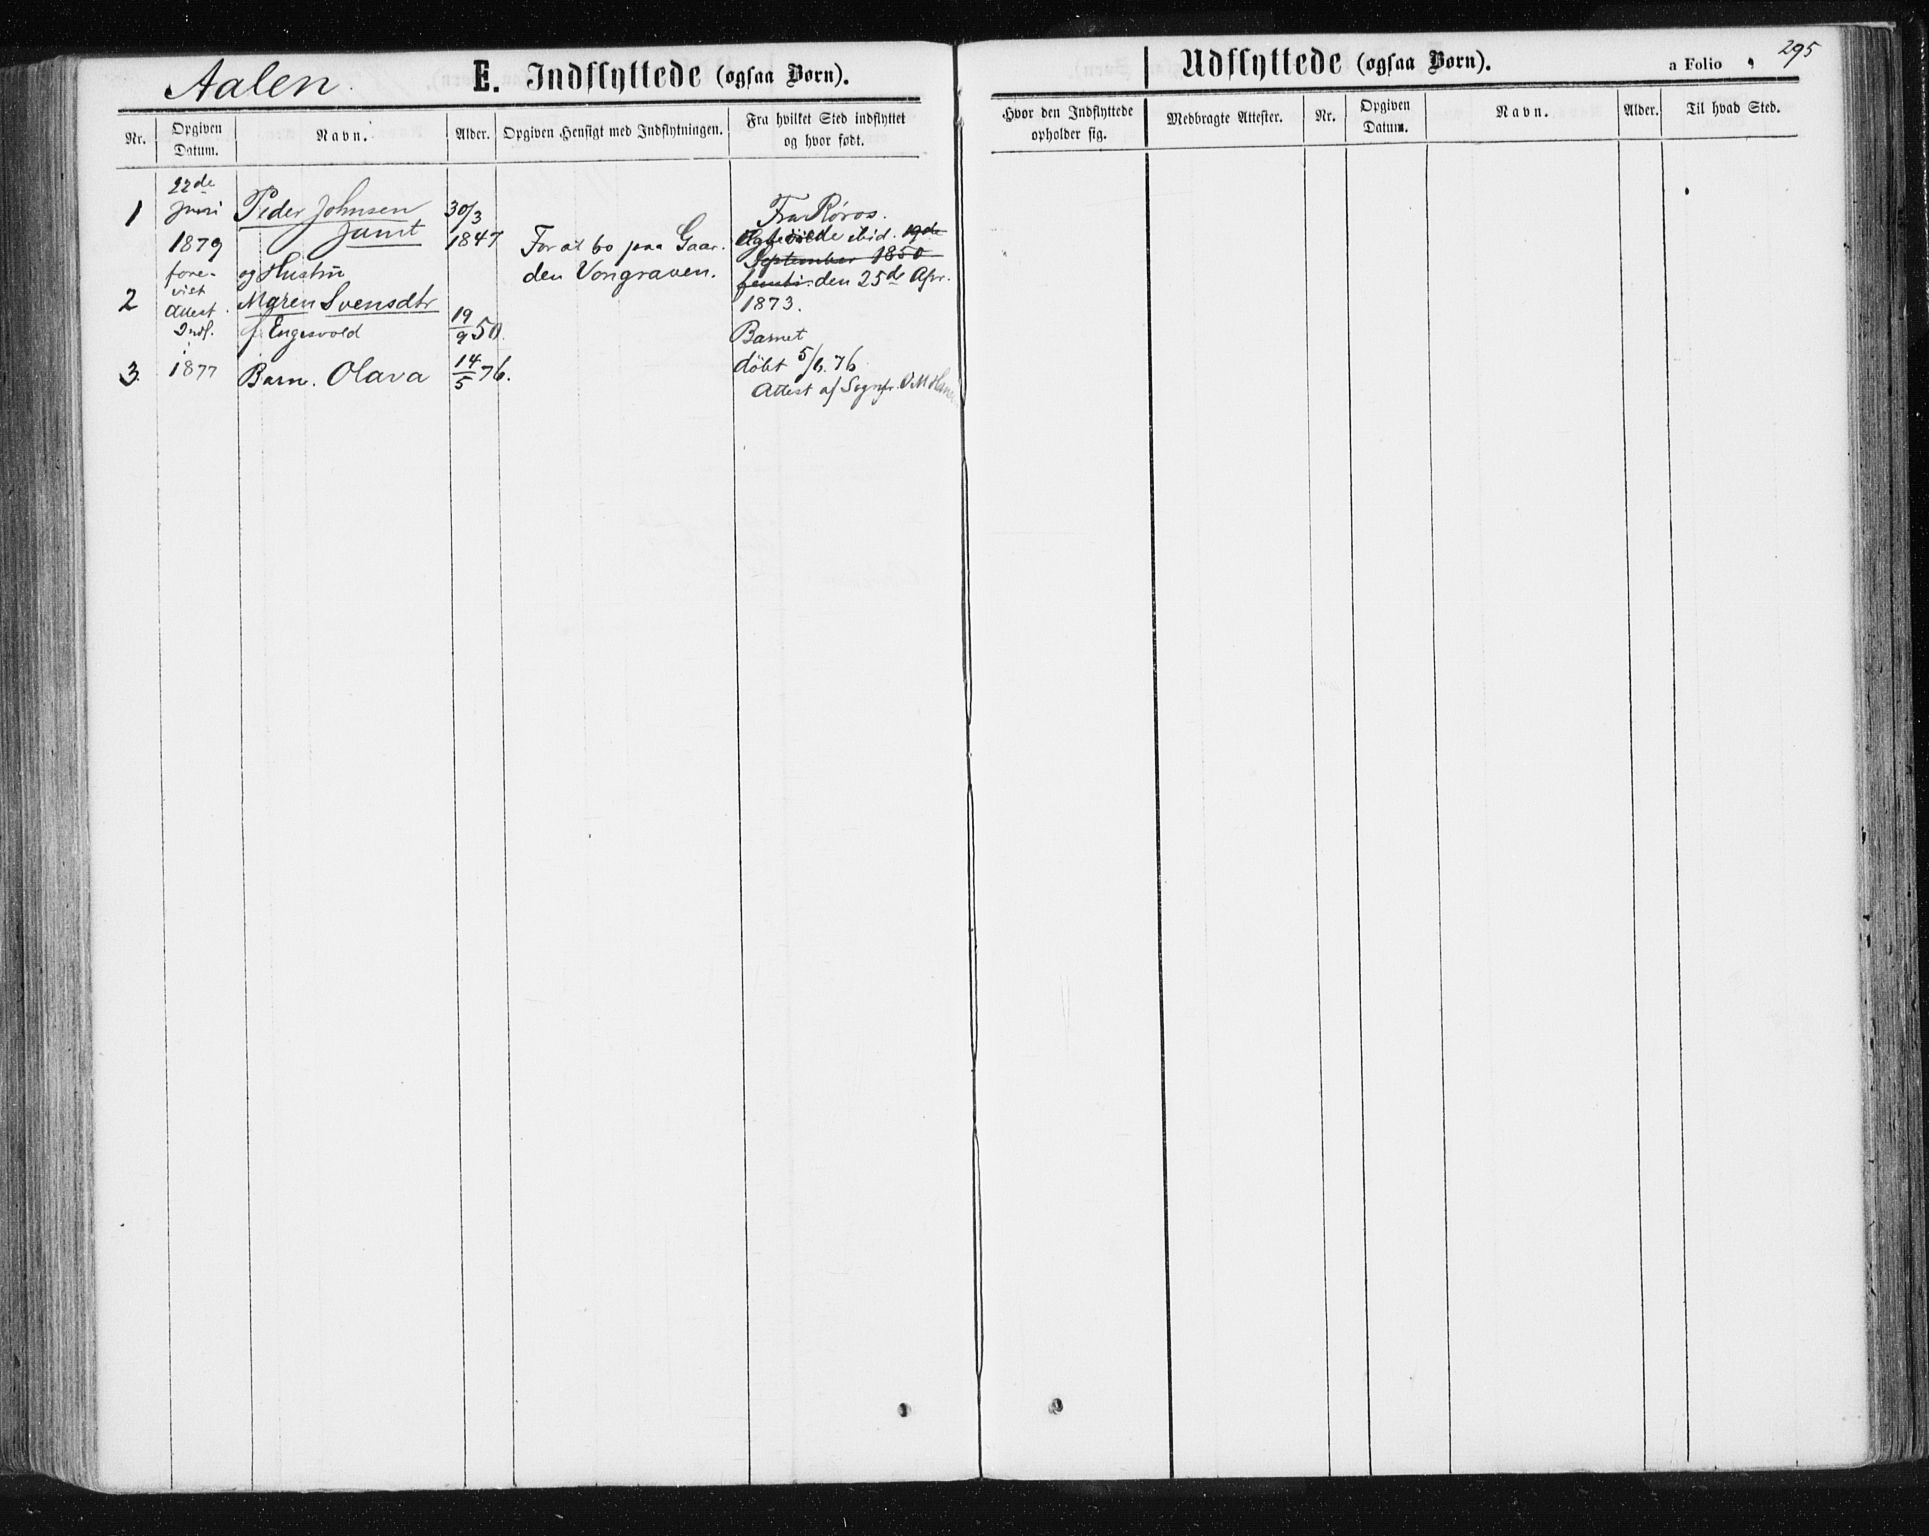 Aalen.
E. Indflyttede (ogsaa Børn).
Nr.
Opgiven Datum.
Navn.
Alder.
Opgiven Hensigt med Indflytningen.
Fra hvilket Sted indflyttet og hvor født.
1
22de
Juni
1879
fore-
vist
Attest.
Indf.
i
1877
Peder Johnsen
Jamt
og Hustru
30/3
1847
For at bo paa Gaar-
den Vongraven.
Fra Røros.
Ægteviede ibid. 19de
September 1850
den 25de Apr.
1873.
2
Maren Svensdtr
f. Engesvold
19/9 50.
Barnet
døbt 5/6. 76
Attest af Sognpr. O M Hansen
3.
Barn. Olava
14/5 76.
Udflyttede (ogsaa Børn).
a Folio
295
Hvor den Indflyttede opholder sig.
Medbragte Attester.
Nr.
Opgiven Datum.
Navn.
Alder.
Til hvad Sted.